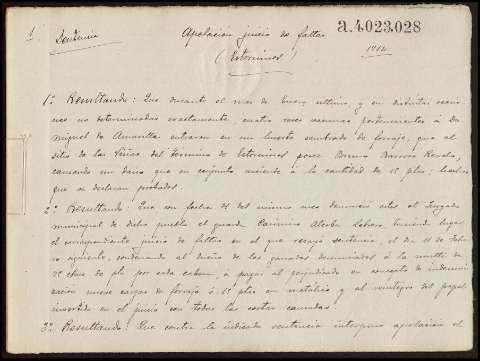 1 Sentencia
Apelación juicio de faltas
a.4023.028
(Estercines)
1914
1º Resultando: Que durante el mes de Enero último, y en distintas ocasio-
nes no determinadas exactamente cuatro reses vacunas pertenecientes á Dn
Miguel de entraron en un huerto sembrado de forraje, que al
sitio de las Peñas del término de posee Bruno Barrios
causando un daño que en conjunto asciende á la cantidad de 15 ptas; hechos
que se declaran probados.
2º Resultando: Que con fecha 21 del mismo mes denunció ante el Juzgado
municipal de dicho pueblo el guarda Casimiro Alcoba teniendo lugar
el correspondiente juicio de faltas en el que recayó sentencia, el dia 11 de Febre-
ro siguiente, condenando al dueño de los ganados denunciados á la multa de
por cada cabeza, á pagar al perjudicado en concepto de indemni-
zación nueve cargas de forraje ó 15 ptas en metálico y al reintegro del papel
invertido en el juicio con todas las costas causadas.
3º Resultando: Que contra la indicada sentencia interpuso apelación el